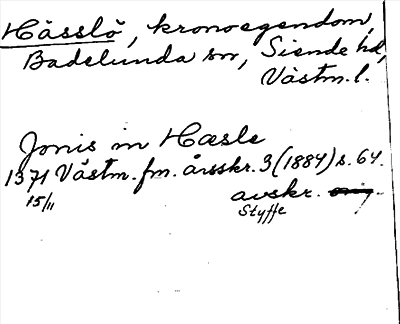 Hässlö, kronoegendom,
Badelunda sn, Siende hd,
Västm. l.
Jonis in Hæsle
1371 Västm. fm. årsskr. 3 (1884) s. 64.
15/11 avskr. orig.
Styffe